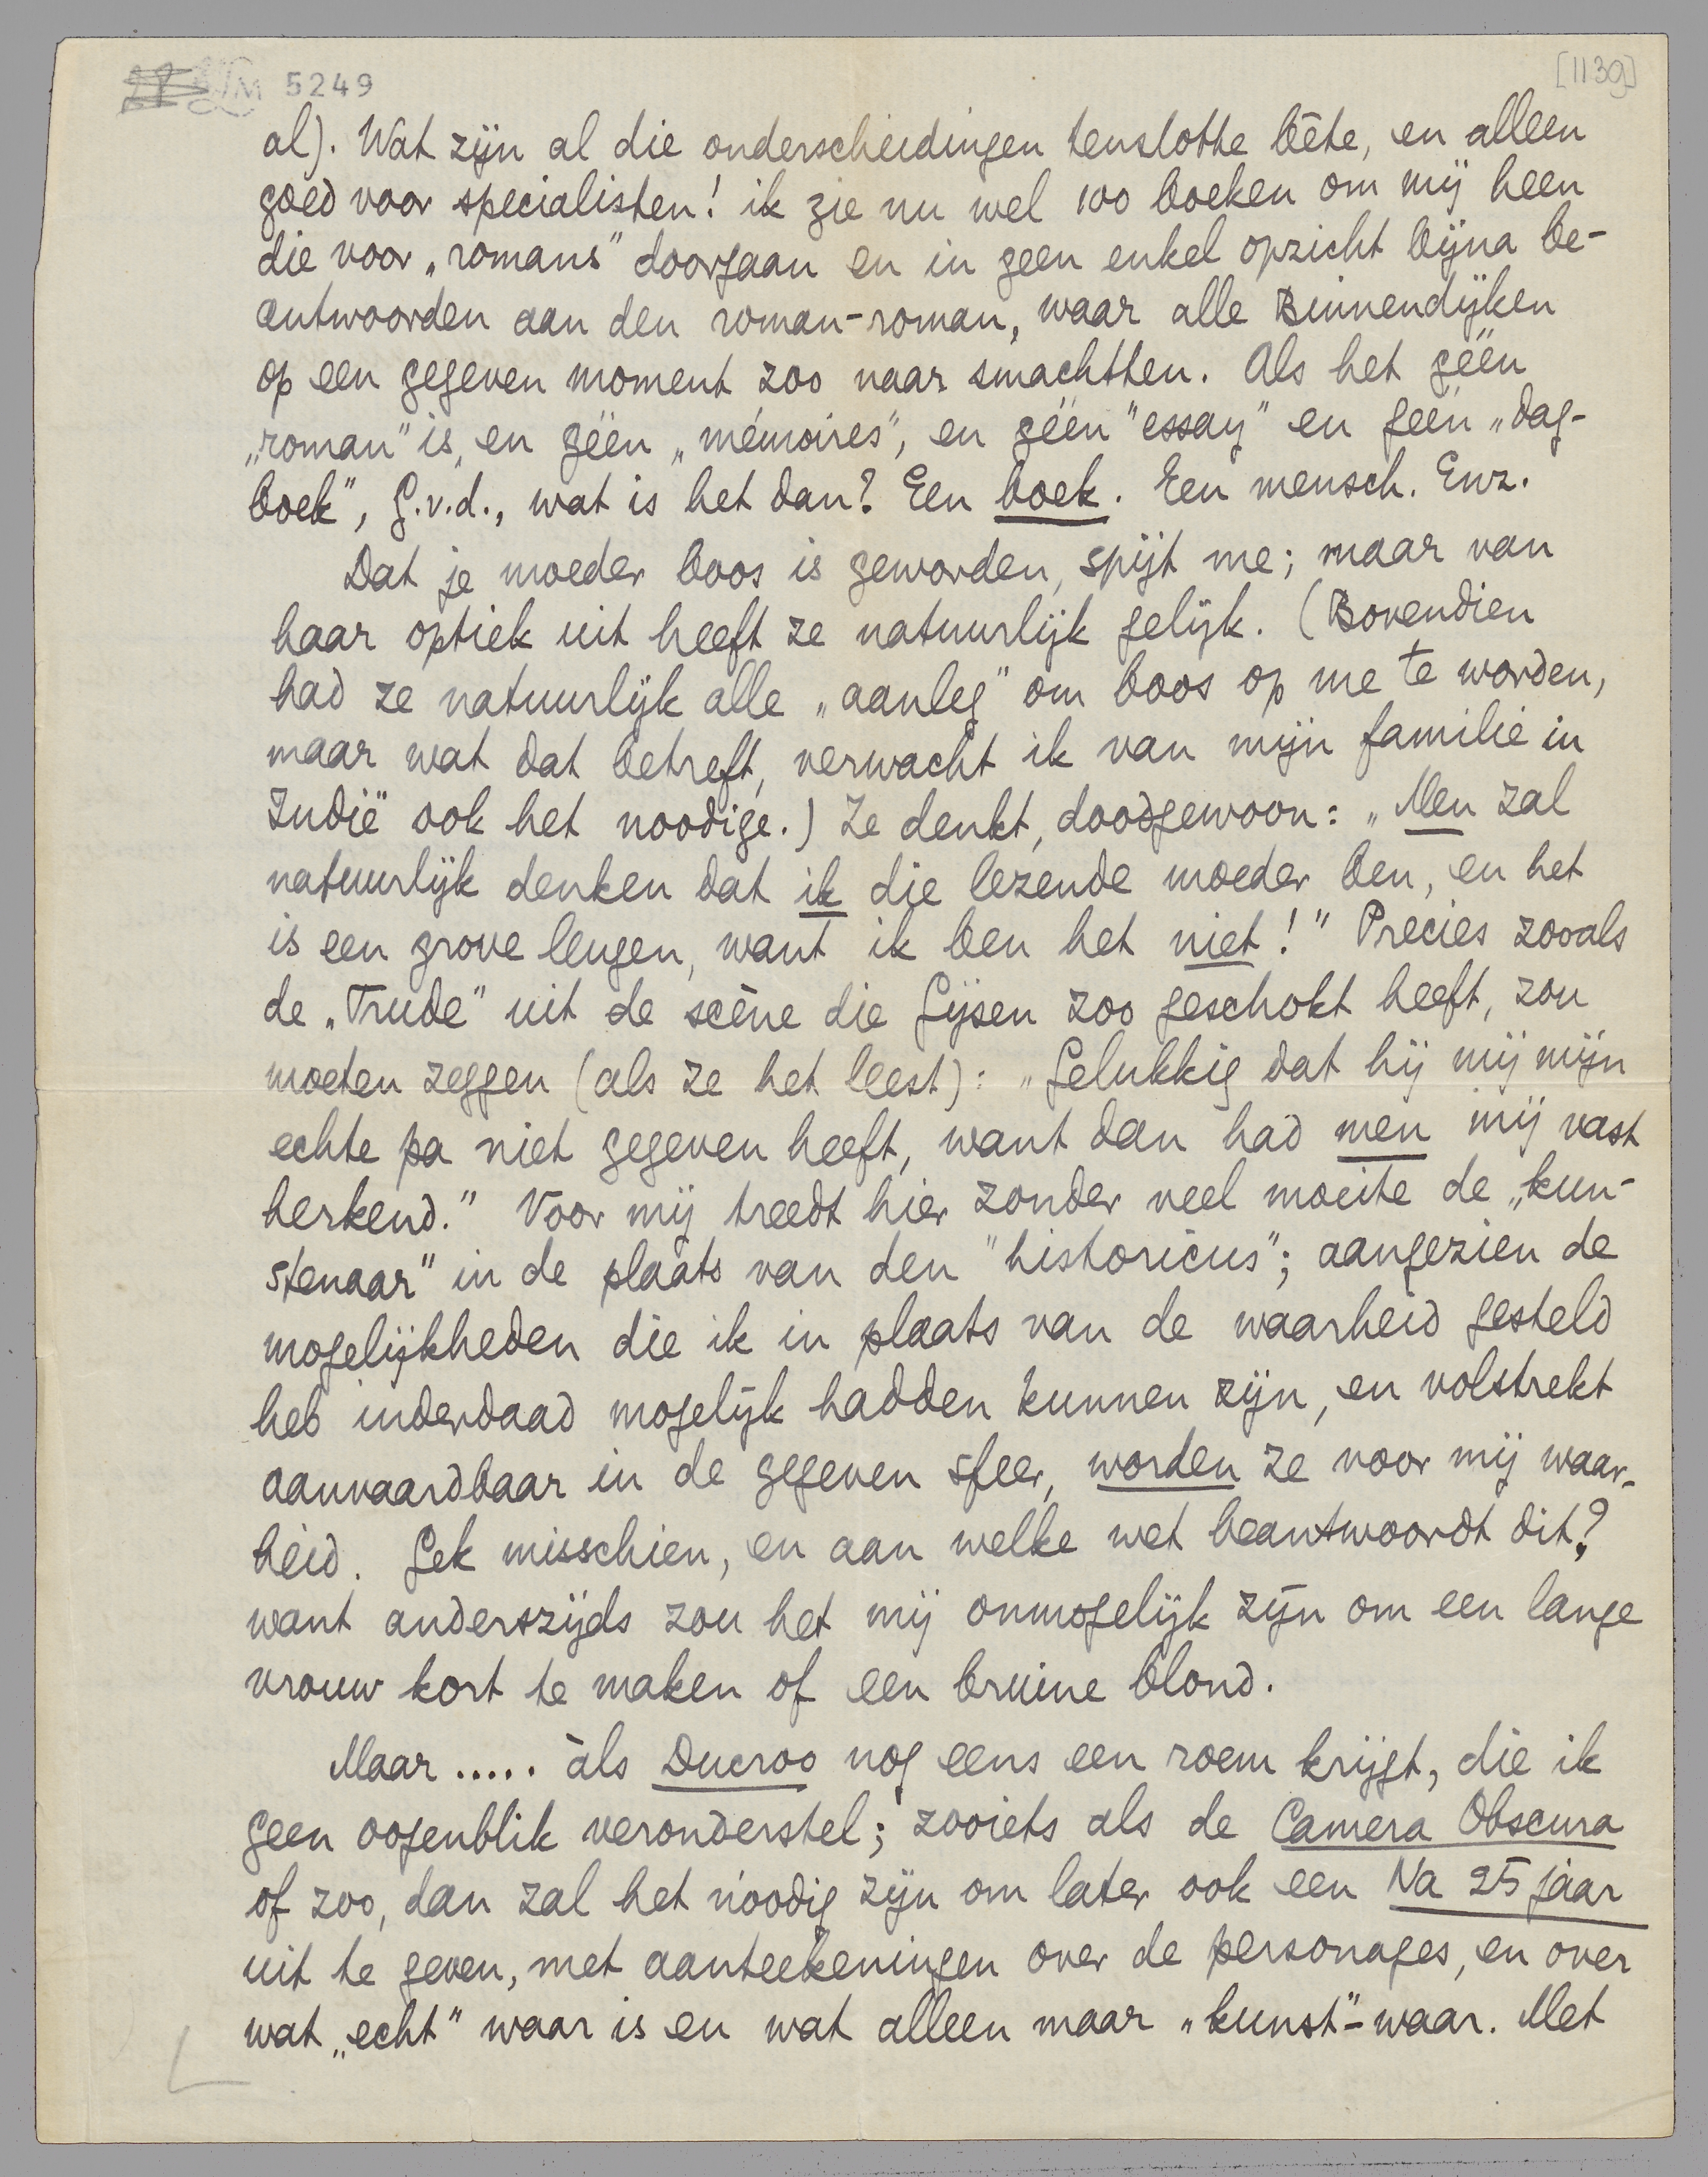 LM 5249
[1139]
al). Wat zijn al die onderscheidingen tenslotte bête, en alleen
goed voor specialisten! ik zie nu wel 100 boeken om mij heen
die voor „romans" doorgaan en in geen enkel opzicht bijna be-
antwoorden aan den roman-roman, waar alle Binnendijken
op een gegeven moment zoo naar smachtten. Als het géén
„roman" is, en géén „mémoires", en géén "essay" en géén „dag-
boek", G.v.d., wat is het dan? Een boek. Een mensch. Enz.
Dat je moeder boos is geworden, spijt me; maar van
haar optiek uit heeft ze natuurlijk gelijk. (Bovendien
had ze natuurlijk alle „aanleg" om boos op me te worden,
maar wat dat betreft, verwacht ik van mijn familie in
Indië ook het noodige.) Ze denkt, doodgewoon: „Men zal
natuurlijk denken dat ik die lezende moeder ben, en het
is een grove leugen, want ik ben het niet!" Precies zooals
de „Trude" uit de scène die Gijsen zoo geschokt heeft, zou
moeten zeggen (als ze het leest): „Gelukkig dat hij mij mijn
echte pa niet gegeven heeft, want dan had men mij vast
herkend." Voor mij treedt hier zonder veel moeite de „kun-
stenaar" in de plaats van den "historicus"; aangezien de
mogelijkheden die ik in plaats van de waarheid gesteld
heb inderdaad mogelijk hadden kunnen zijn, en volstrekt
aanvaardbaar in de gegeven sfeer, worden ze voor mij waar-
heid. Gek misschien, en aan welke wet beantwoordt dit?
want anderszijds zou het mij onmogelijk zijn om een lange
vrouw kort te maken of een bruine blond.
Maar ..... àls Ducroo nog eens een roem krijgt, die ik
geen oogenblik veronderstel; zooiets als de Camera Obscura
of zoo, dan zal het noodig zijn om later ook een Na 25 jaar
uit te geven, met aanteekeningen over de personages, en over
wat „echt" waar is en wat alleen maar „kunst"-waar. Met